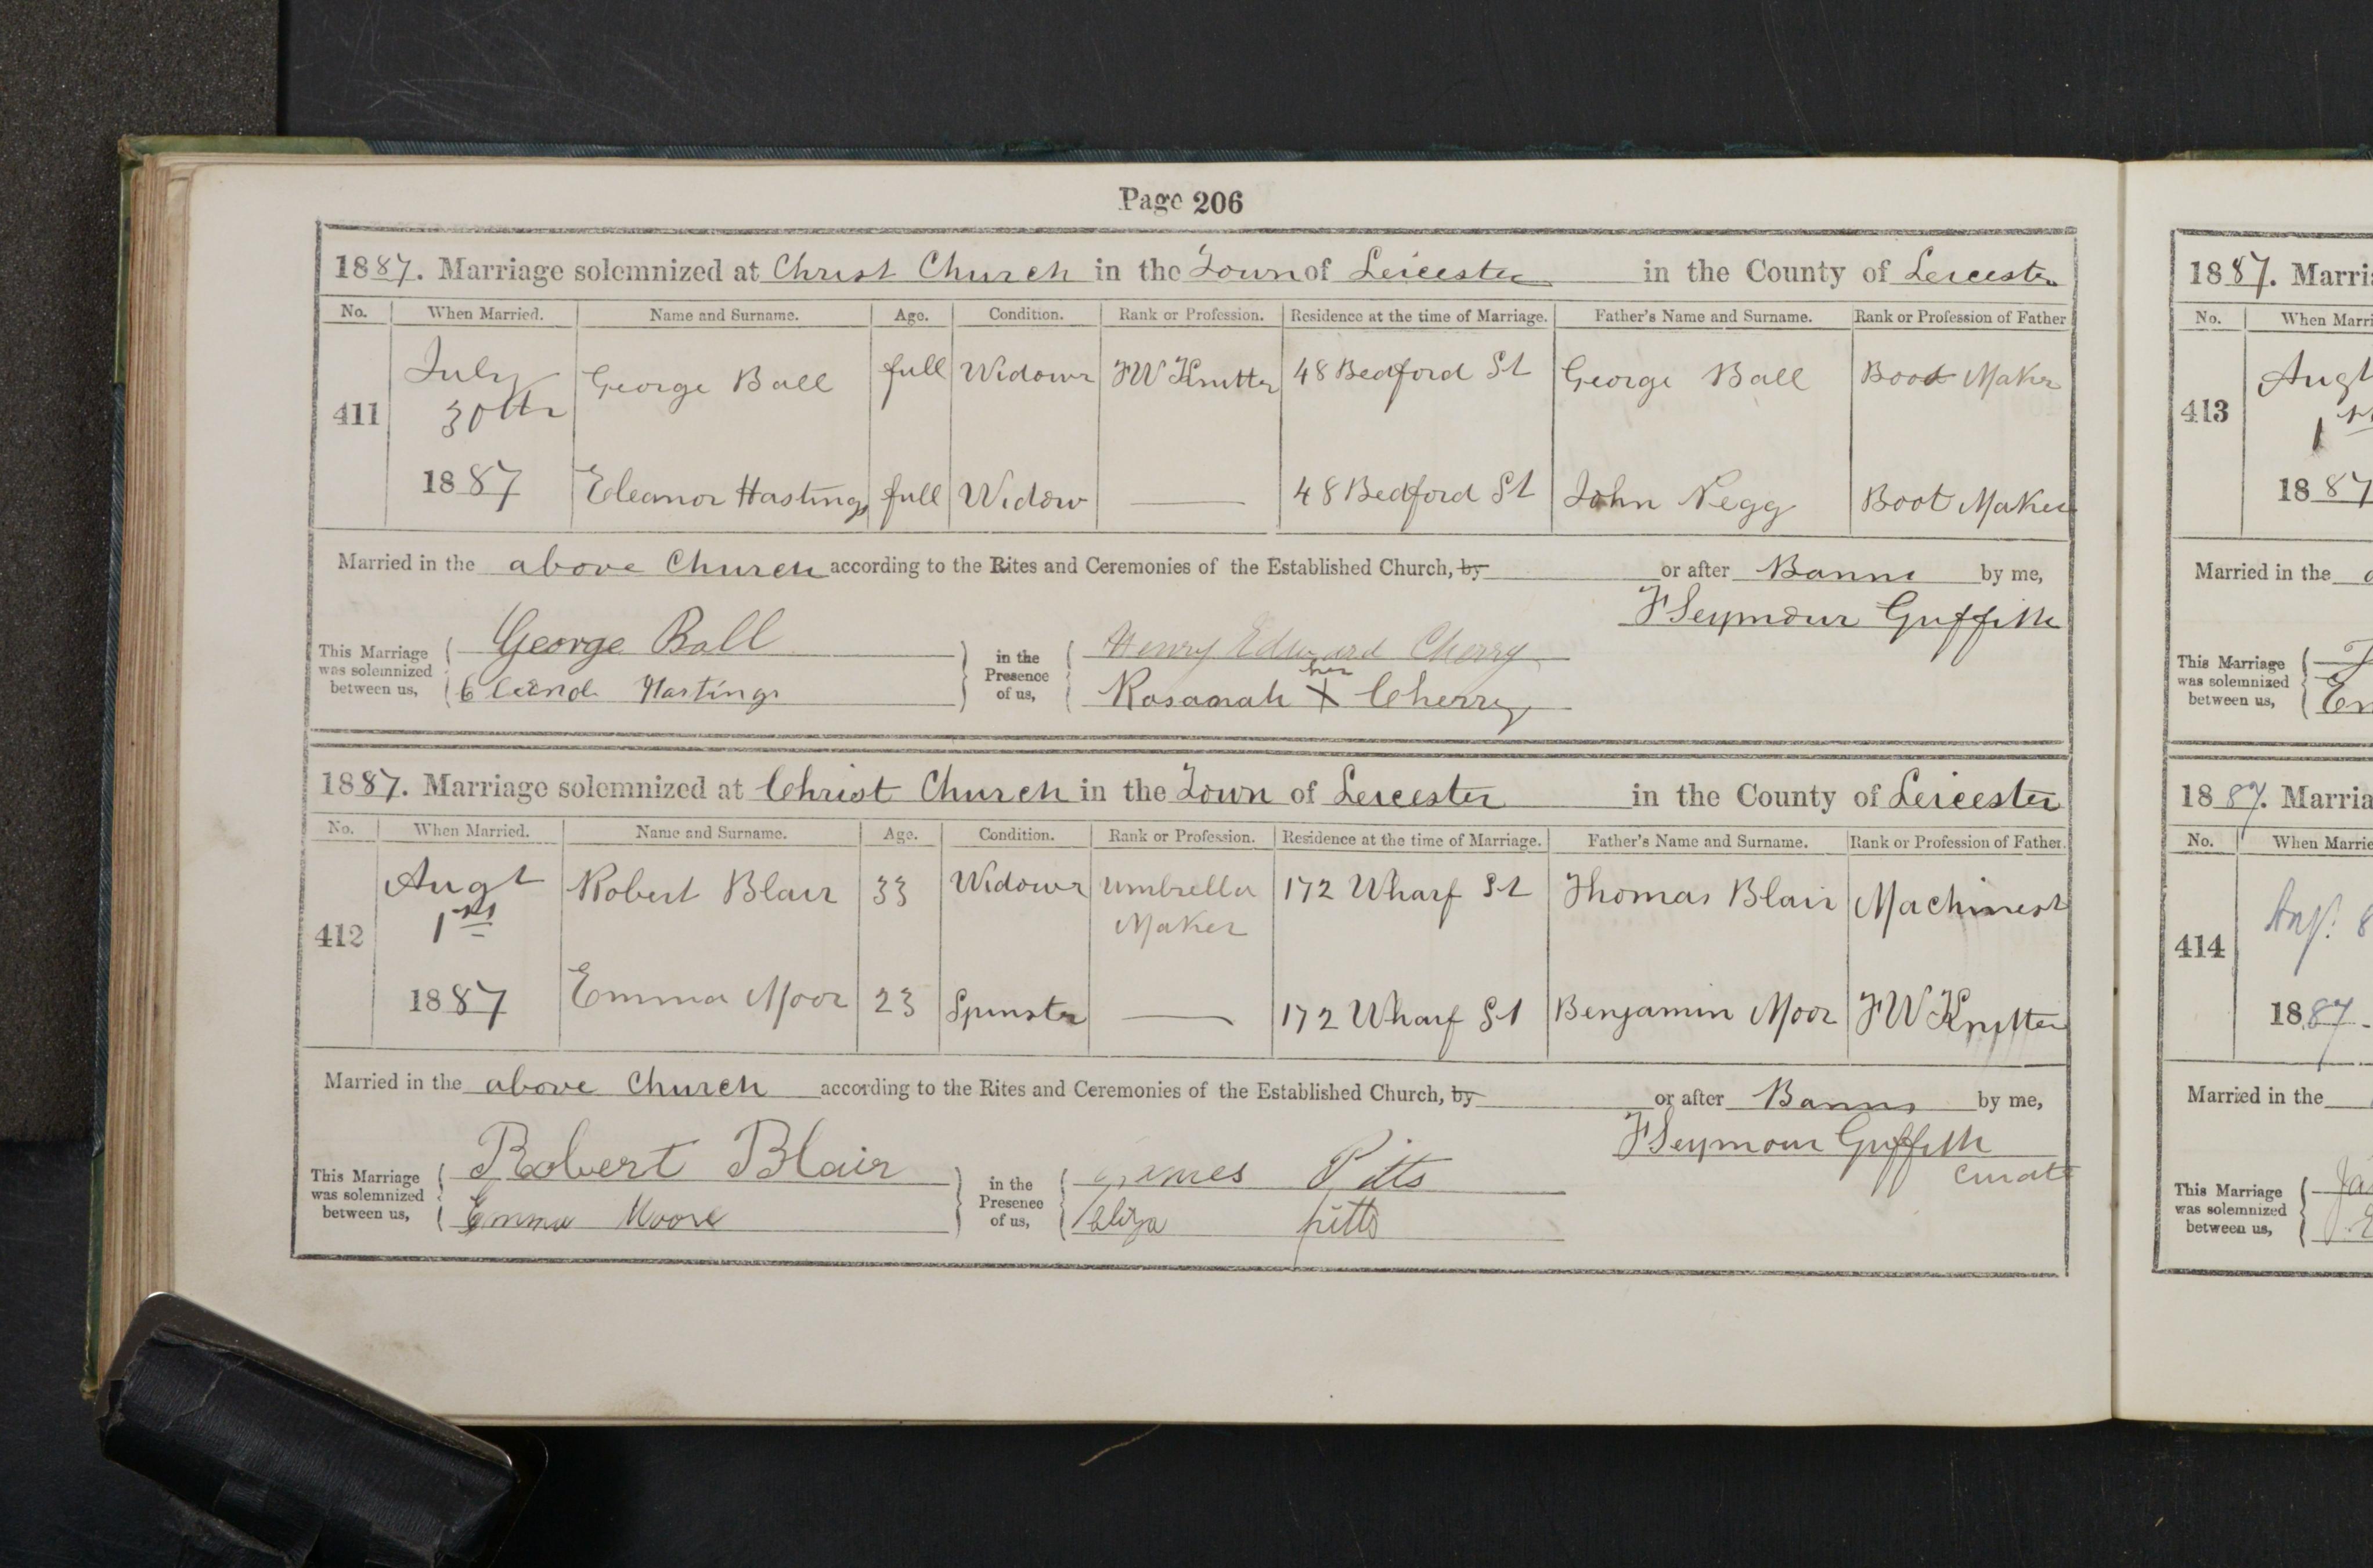 Page 206
1887. Marriage solemnized at Christ Church in the Town of Leicester in the County of Leicester
No. When Married. Name and Surname. Age. Condition. Rank or Profession. Residence at the time of Marriage. Father's Name and Surname. Rank or Profession of Father
411 July 30th George Ball full Widowr FW Knitter 48 Bedford St George Ball Boot Maker
1887 Eleanor Hastings full Widow 48 Bedford St John Pegg Boot Maker
Married in the above Church according to the Rites and Ceremonies of the Established Church, by or after Banns by me,
F Seymour Griffith
This Marriage was solemnized between us, George Ball in the Presence of us, Henry Edward Cherry
Hastings Rosanah her X Cherry
1887. Marriage solemnized at Christ Church in the Town of Leicester in the County of Leicester
No. When Married. Name and Surname. Age. Condition. Rank or Profession. Residence at the time of Marriage. Father's Name and Surname. Rank or Profession of Father.
412 Augt 1st Robert Blair 33 Widowr Umbrella Maker 172 Wharf St Thomas Blair Machinest
1887 Emma Moor 23 Spinster 172 Wharf St Benjamin Moor FW Knitter
Married in the above Church according to the Rites and Ceremonies of the Established Church, by or after Banns by me,
F Seymour Griffith
Curate
This Marriage was solemnized between us, Robert Blair in the Presence of us, James Pitts
Emma Moore Eliza pitts
1887. Marri
No. When Marri
413 Augt 1st
1887
Married in the
This Marriage was solemnized between us,
1887. Marria
No. When Marrie
414 Aug. 8
1887
Married in the
This Marriage was solemnized between us,